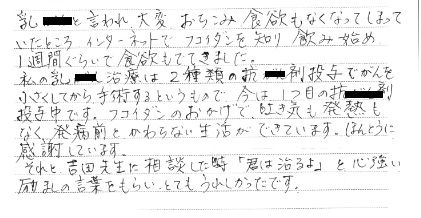 乳■■と言われ大変おちこみ食欲もなくなってしまって
いたところインターネットでフコイダンを知り飲み始め
1週間ぐらいで食欲もでてきました。
私の乳■■治療は2種類の抗■■剤投与でがんを
小さくしてから手術するというもので今は1つ目の抗■■剤
投与中です。フコイダンのおかげで吐き気も発熱も
なく、発病前とかわらない生活ができています。ほんとうに
感謝しています。
それと吉田先生に相談した時「君は治るよ」と心強い
励ましの言葉をもらいとてもうれしかったです。